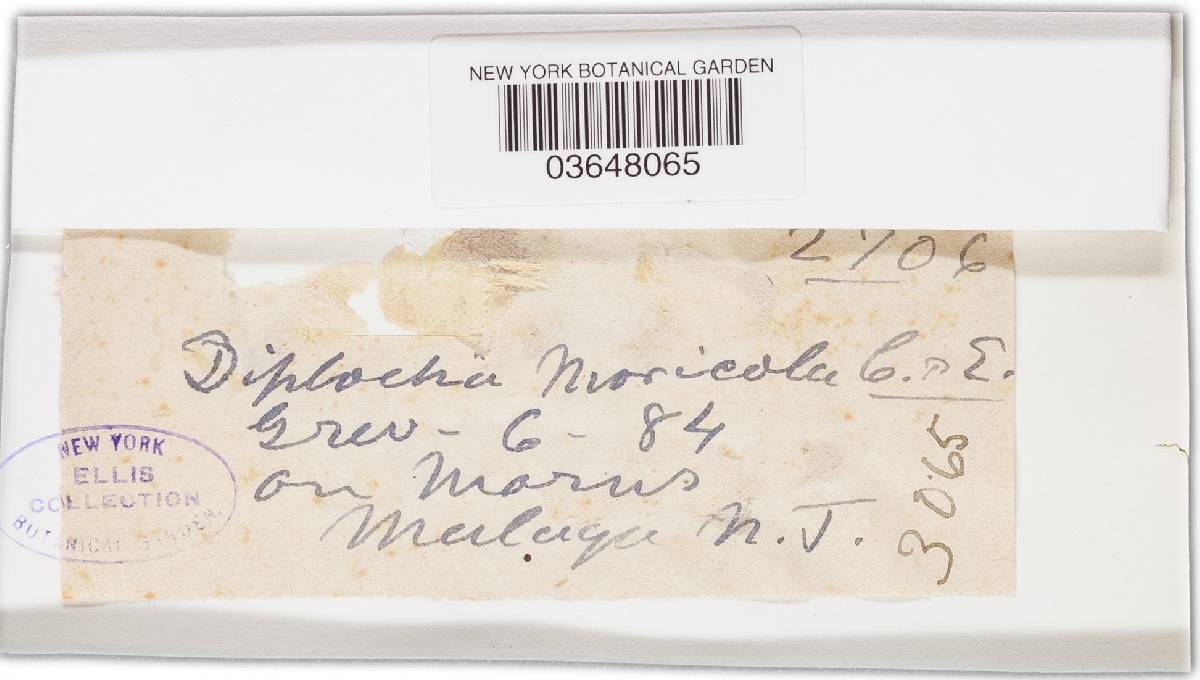 NEW YORK BOTANICAL GARDEN
03648065
2706
Diplodia Moricola C. & E.
Grev - 6 - 84
on Morus
Malaga N. J.
3065
NEW YORK
ELLIS
COLLECTION
BOTANICAL GARDEN.